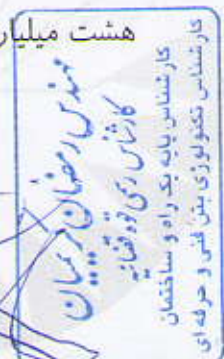 هشت میلیار
مهندس رمضان کریمیان
کارشناس رسمی قوه قضائیه
کارشناس پایه یک راه و ساختمان
کارشناس تکنولوژی بتن فنی و حرفه ای